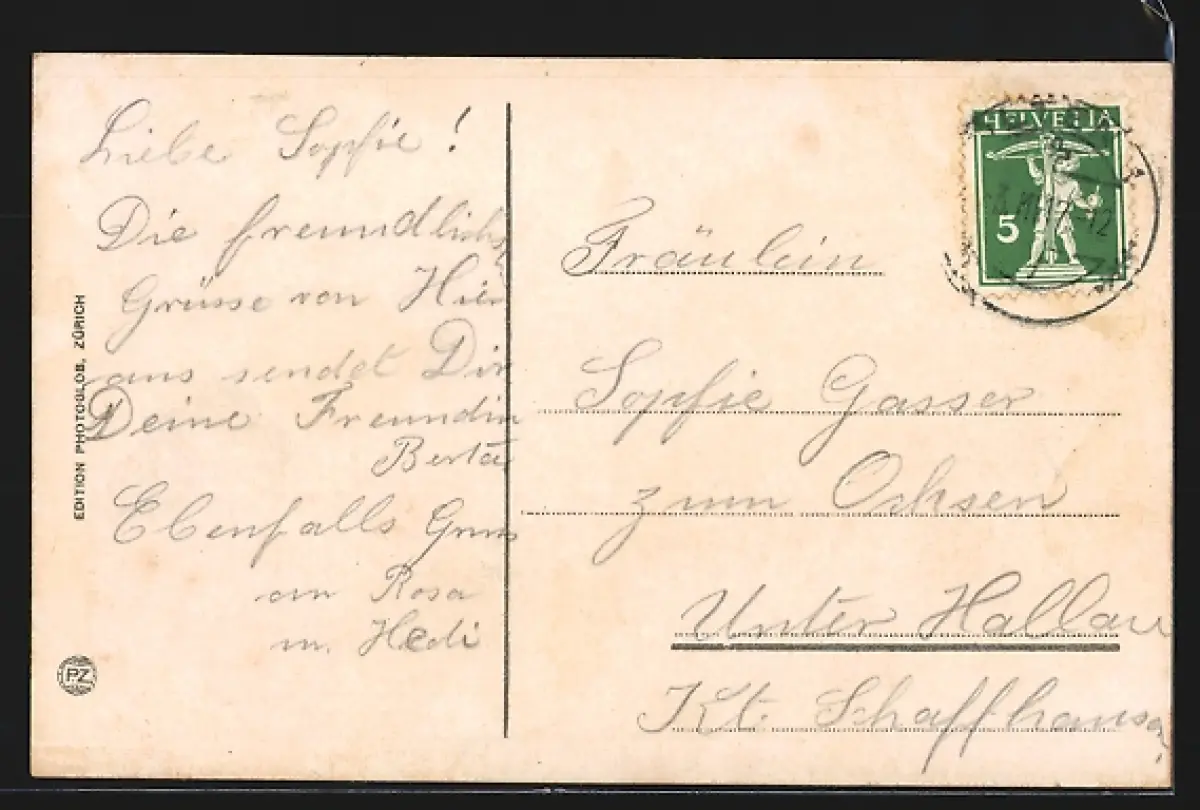 Liebe Sopfie!
Die freundlichs
Grüsse von Hier
aus sendet Dir
Deine Freundin
Berta
Ebenfalls Gruss
an Rosa
u. Hedi
EDITION PHOTOGLOB, ZÜRICH
PZ
HELVETIA
5
12
Fräulein
Sopfie Gasser
zum Ochsen
Unter Hallau
Kt. Schaffhausen